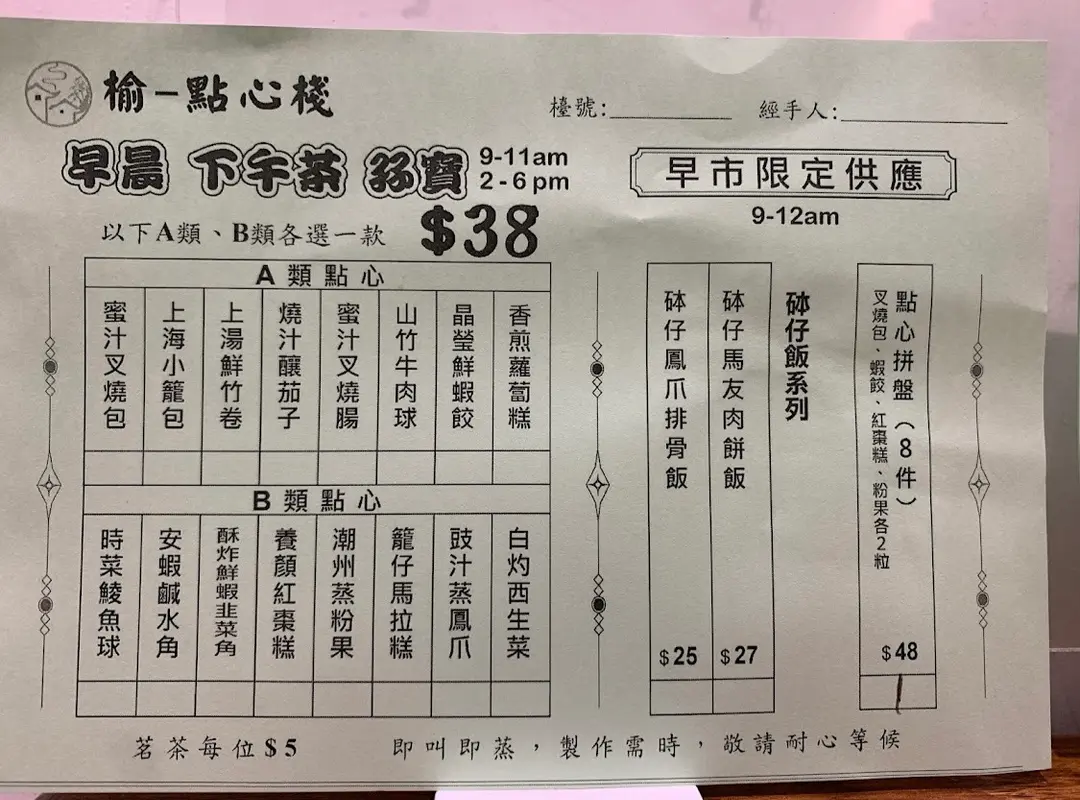 榆一點心棧
檯號:
經手人:
早晨 下午茶 孖寶
9-11am
2-6pm
以下A類、B類各選一款
$38
早市限定供應
9-12am
A類點心
香煎蘿蔔糕
晶瑩鮮蝦餃
山竹牛肉球
蜜汁叉燒腸
燒汁釀茄子
上湯鮮竹卷
上海小籠包
蜜汁叉燒包
B類點心
白灼西生菜
豉汁蒸鳳爪
籠仔馬拉糕
潮州蒸粉果
養顏紅棗糕
酥炸鮮蝦韭菜角
安蝦鹹水角
時菜鯪魚球
點心拼盤(8件)
叉燒包、蝦餃、紅棗糕、粉果各2粒
$48
砵仔飯系列
砵仔馬友肉餅飯
$27
砵仔鳳爪排骨飯
$25
茗茶每位$5
即叫即蒸，製作需時，敬請耐心等候